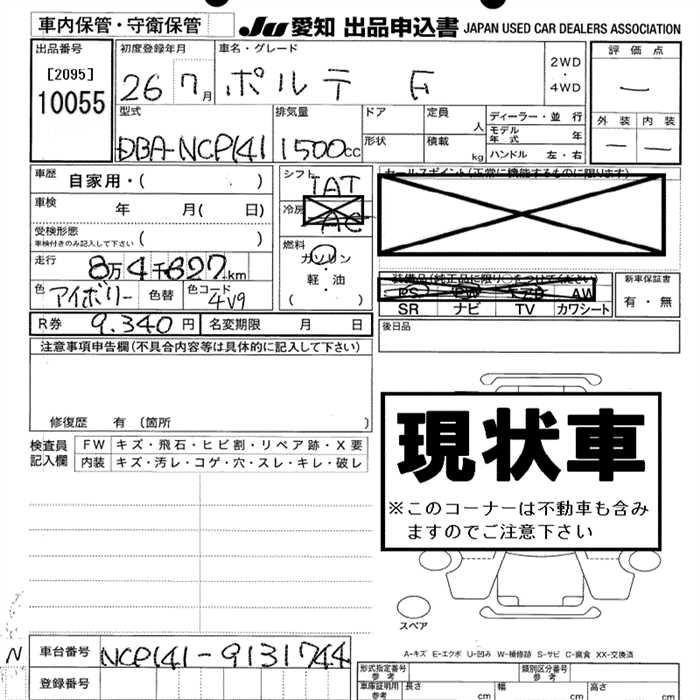 車内保管・守衛保管
JU 愛知 出品申込書 JAPAN USED CAR DEALERS ASSOCIATION
出品番号
[2095]
10055
初度登録年月
26 7月
車名・グレード
ポルテ F
2WD
・
4WD
評価点
—
外装 内装
— —
型式
DBA-NCP141
排気量
1500cc
ドア
形状
定員 人
積載 kg
ディーラー・並行
モデル年式 年
ハンドル 左・右
車歴 自家用・( )
車検 年 月( 日)
受検形態
車検付きのみ記入して下さい ( )
走行 8万4千627km
色 アイボリー 色替 色コード 4V9
シフト
IAT
冷房
AC
燃料
ガソリン
・
軽・油
( )
セールスポイント(正常に機能するものに限ります)
装備品(純正品に限り○をつけてください)
PS PW エアB AW
SR ナビ TV カワシート
新車保証書
有・無
R券 9,340円 名変期限 月 日
後日品
注意事項申告欄(不具合内容等は具体的に記入して下さい)
修復歴 有 〔箇所 〕
検査員記入欄
FW キズ・飛石・ヒビ割・リペア跡・X要
内装 キズ・汚レ・コゲ・穴・スレ・キレ・破レ
現状車
※このコーナーは不動車も含み
ますのでご注意下さい
スペア
A-キズ E-エクボ U-凹み W-補修跡 S-サビ C-腐食 XX-交換済
N
車台番号 NCP141-9131744
登録番号
形式指定番号 参考
類別区分番号 参考
車庫証明用 参考 長さ cm 幅 cm 高さ cm